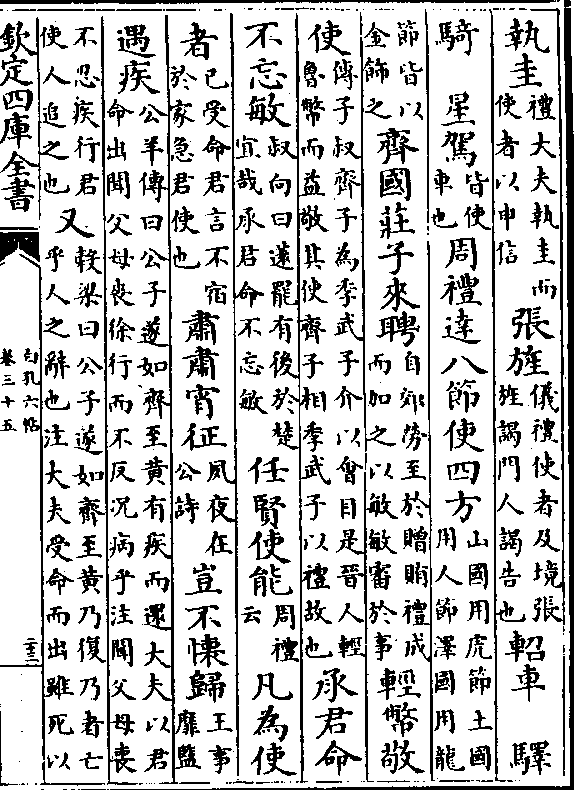 執圭禮大夫執圭而使者以申信張旌儀禮使者及境張旌謁門人謁告也軺車　驛
騎　星駕皆使車也周禮達八節使四方山國用虎節土國用人節澤國用龍
節皆以金飾之齊國莊子來聘自郊勞至於贈賄禮成而加之以敏敏審於事輕幣敬
使傳子叔齊子為季武子介以會自是晉人輕魯幣而益敬其使齊子相季武子以禮故也承君命
不忘敏叔向曰薳罷有後於楚宜哉承君命不忘敏任賢使能周禮云凡為使
者已受命君言不宿於家急君使也肅肅宵征夙夜在公詩豈不懷歸王事靡盬
遇疾公羊傳曰公子遂如齊至黃有疾而還大夫以君命出聞父母喪徐行而不反況病乎注聞父母喪
不忍疾行君使人追之也又穀梁曰公子遂如齊至黃乃復乃者亡乎人之辭也注大夫受命而出雖死以
欽定四庫全書
白孔六帖
卷三十五